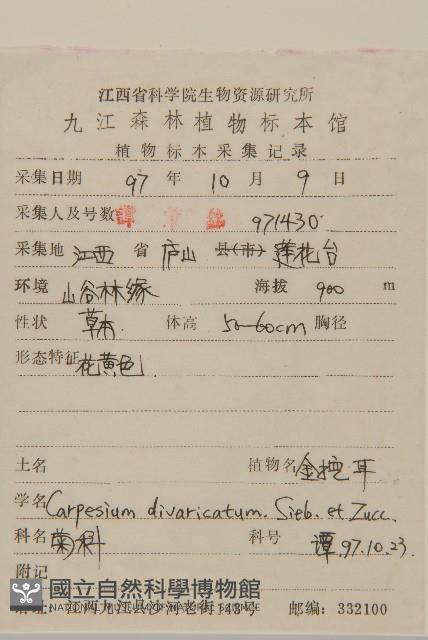 江西省科学院生物资源研究所
九江森林植物标本馆
植物标本采集记录
采集日期 97 年 10 月 9 日
采集人及号数 谭 971430
采集地 江西 省 庐山 县(市) 莲花台
环境 山谷林缘 海拔 900 m
性状 草本 体高 50-60cm 胸径
形态特征 花黄色.
土名 植物名 金挖耳
学名 Carpesium divaricatum. Sieb. et Zucc.
科名 菊科 科号 谭.97.10.23.
附记
國立自然科學博物館
NATIONAL MUSEUM OF NATURAL SCIENCE
江西九江县沙河老街148号 邮编:332100